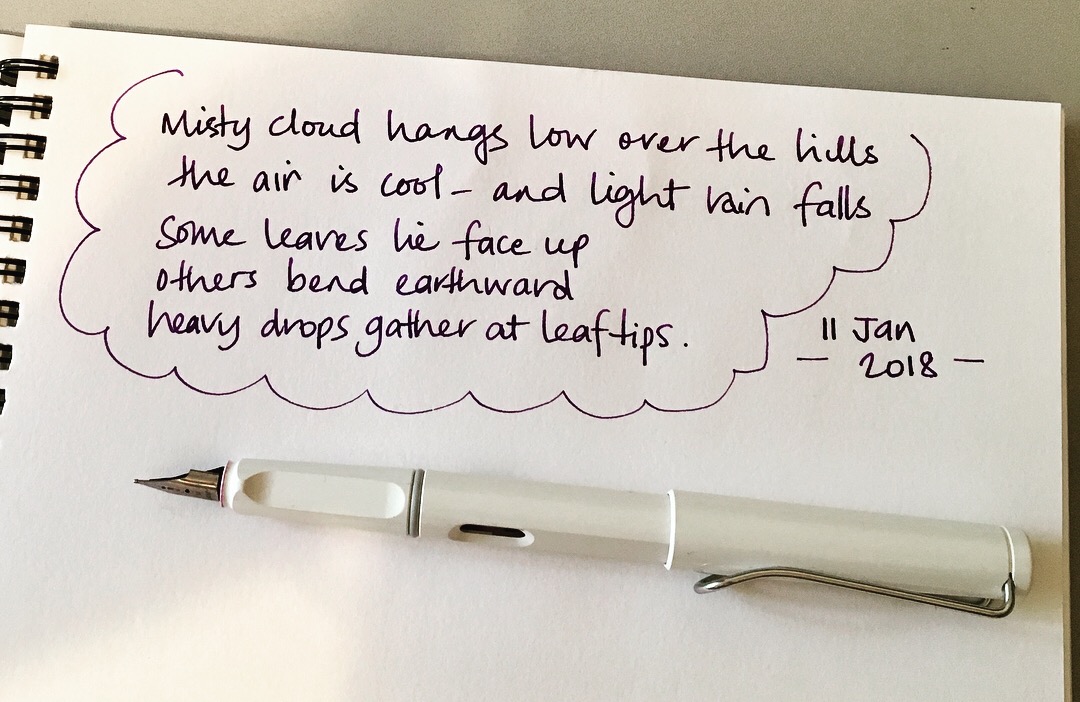 Misty cloud hangs low over the hills
the air is cool – and light rain falls
Some leaves lie face up
others bend earthward
heavy drops gather at leaf tips.
11 Jan
— 2018 —